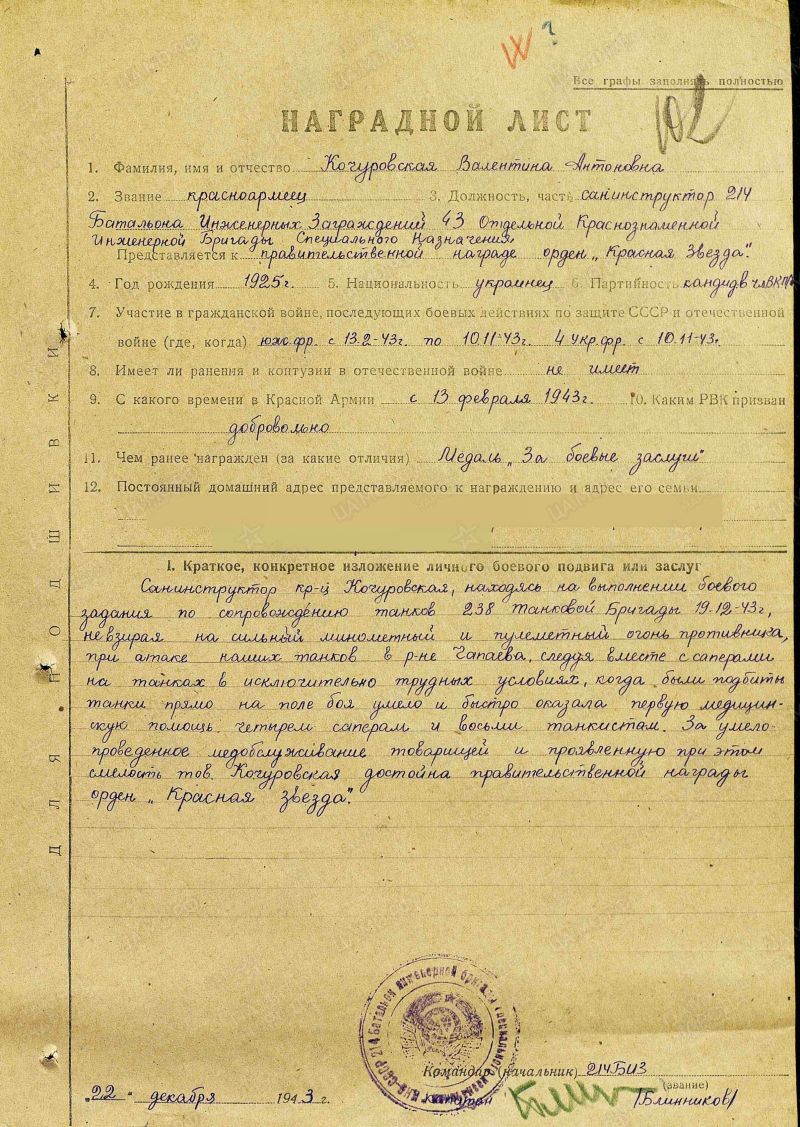 IV ?
Все графы заполнять полностью
102
НАГРАДНОЙ ЛИСТ
1. Фамилия, имя и отчество Кочуровская Валентина Антоновна
2. Звание красноармеец 3. Должность, часть санинструктор 214
Батальона Инженерных Заграждений 43 Отдельной Краснознаменной
Инженерной Бригады Специального Назначения
Представляется к правительственной награде орден „Красная Звезда".
4. Год рождения 1925г. 5. Национальность украинец 6. Партийность кандид. в чл ВКП/б
7. Участие в гражданской войне, последующих боевых действиях по защите СССР и отечественной
войне (где, когда) южн.фр. с 13-2-43г. по 10.11.43г. 4 Укр.фр. с 10-11-43г.
8. Имеет ли ранения и контузии в отечественной войне не имеет
9. С какого времени в Красной Армии с 13 февраля 1943г. 10. Каким РВК призван
добровольно
11. Чем ранее награжден (за какие отличия) Медаль „За боевые заслуги"
12. Постоянный домашний адрес представляемого к награждению и адрес его семьи
I. Краткое, конкретное изложение личного боевого подвига или заслуг
Санинструктор кр-ц Кочуровская, находясь на выполнении боевого
задания по сопровождению танков 238 Танковой Бригады 19-12-43г,
не взирая на сильный минометный и пулеметный огонь противника,
при атаке наших танков в р-не Чапаева, следуя вместе с саперами
на танках в исключительно трудных условиях, когда были подбиты
танки прямо на поле боя умело и быстро оказала первую медицин-
скую помощь четырем саперам и восьми танкистам. За умело-
проведенное медобслуживание товарищей и проявленную при этом
смелость тов. Кочуровская достойна правительственной награды
орден „Красная звезда".
ДЛЯ ПОДШИВКИ
НКО СССР 214 Батальон инженерной бригады специального назначения
Командир (начальник) 214БИЗ
(звание)
„22" декабря 1943 г. капитан /Блинников/